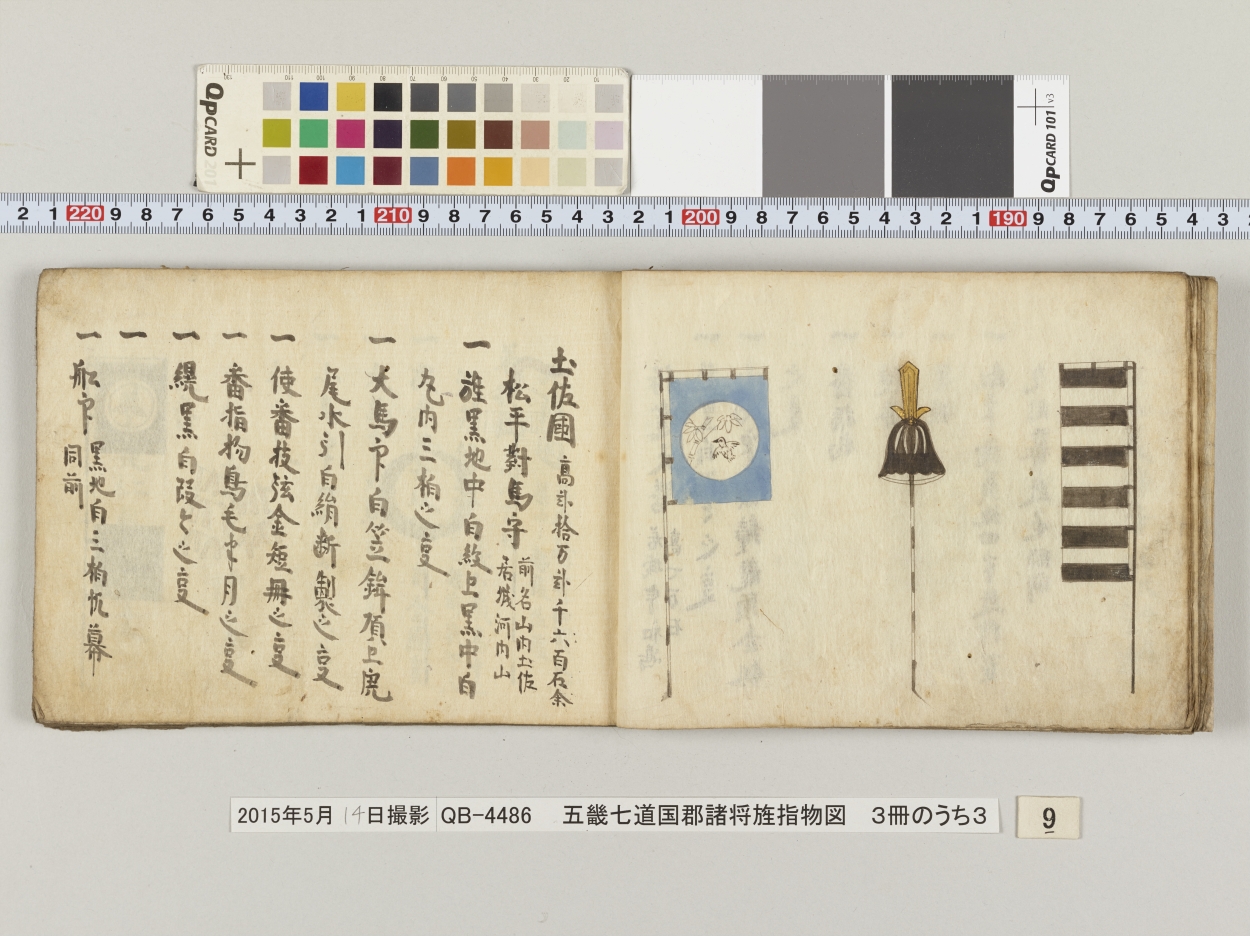 QpCARD 201
QpCARD 101 v3
2 1 220 9 8 7 6 5 4 3 2 1 210 9 8 7 6 5 4 3 2 1 200 9 8 7 6 5 4 3 2 1 190 9 8 7 6 5 4 3
土佐國 高弐拾万弐千六百石余
松平對馬守
前名山内土佐
居城河内山
一 旌黒地中白紋上黒中白
丸内三柏之㕝
一 大馬印白笠鉾頂上鹿
尾水引白絹断製之㕝
一 使番技弦金短冊之㕝
一 番指物鳥毛半月之㕝
一 縨黒白段々之㕝
一
一 船印
黒地白三柏帆幕
同前
2015年5月14日撮影 QB-4486 五畿七道国郡諸将旌指物図 3冊のうち3
9